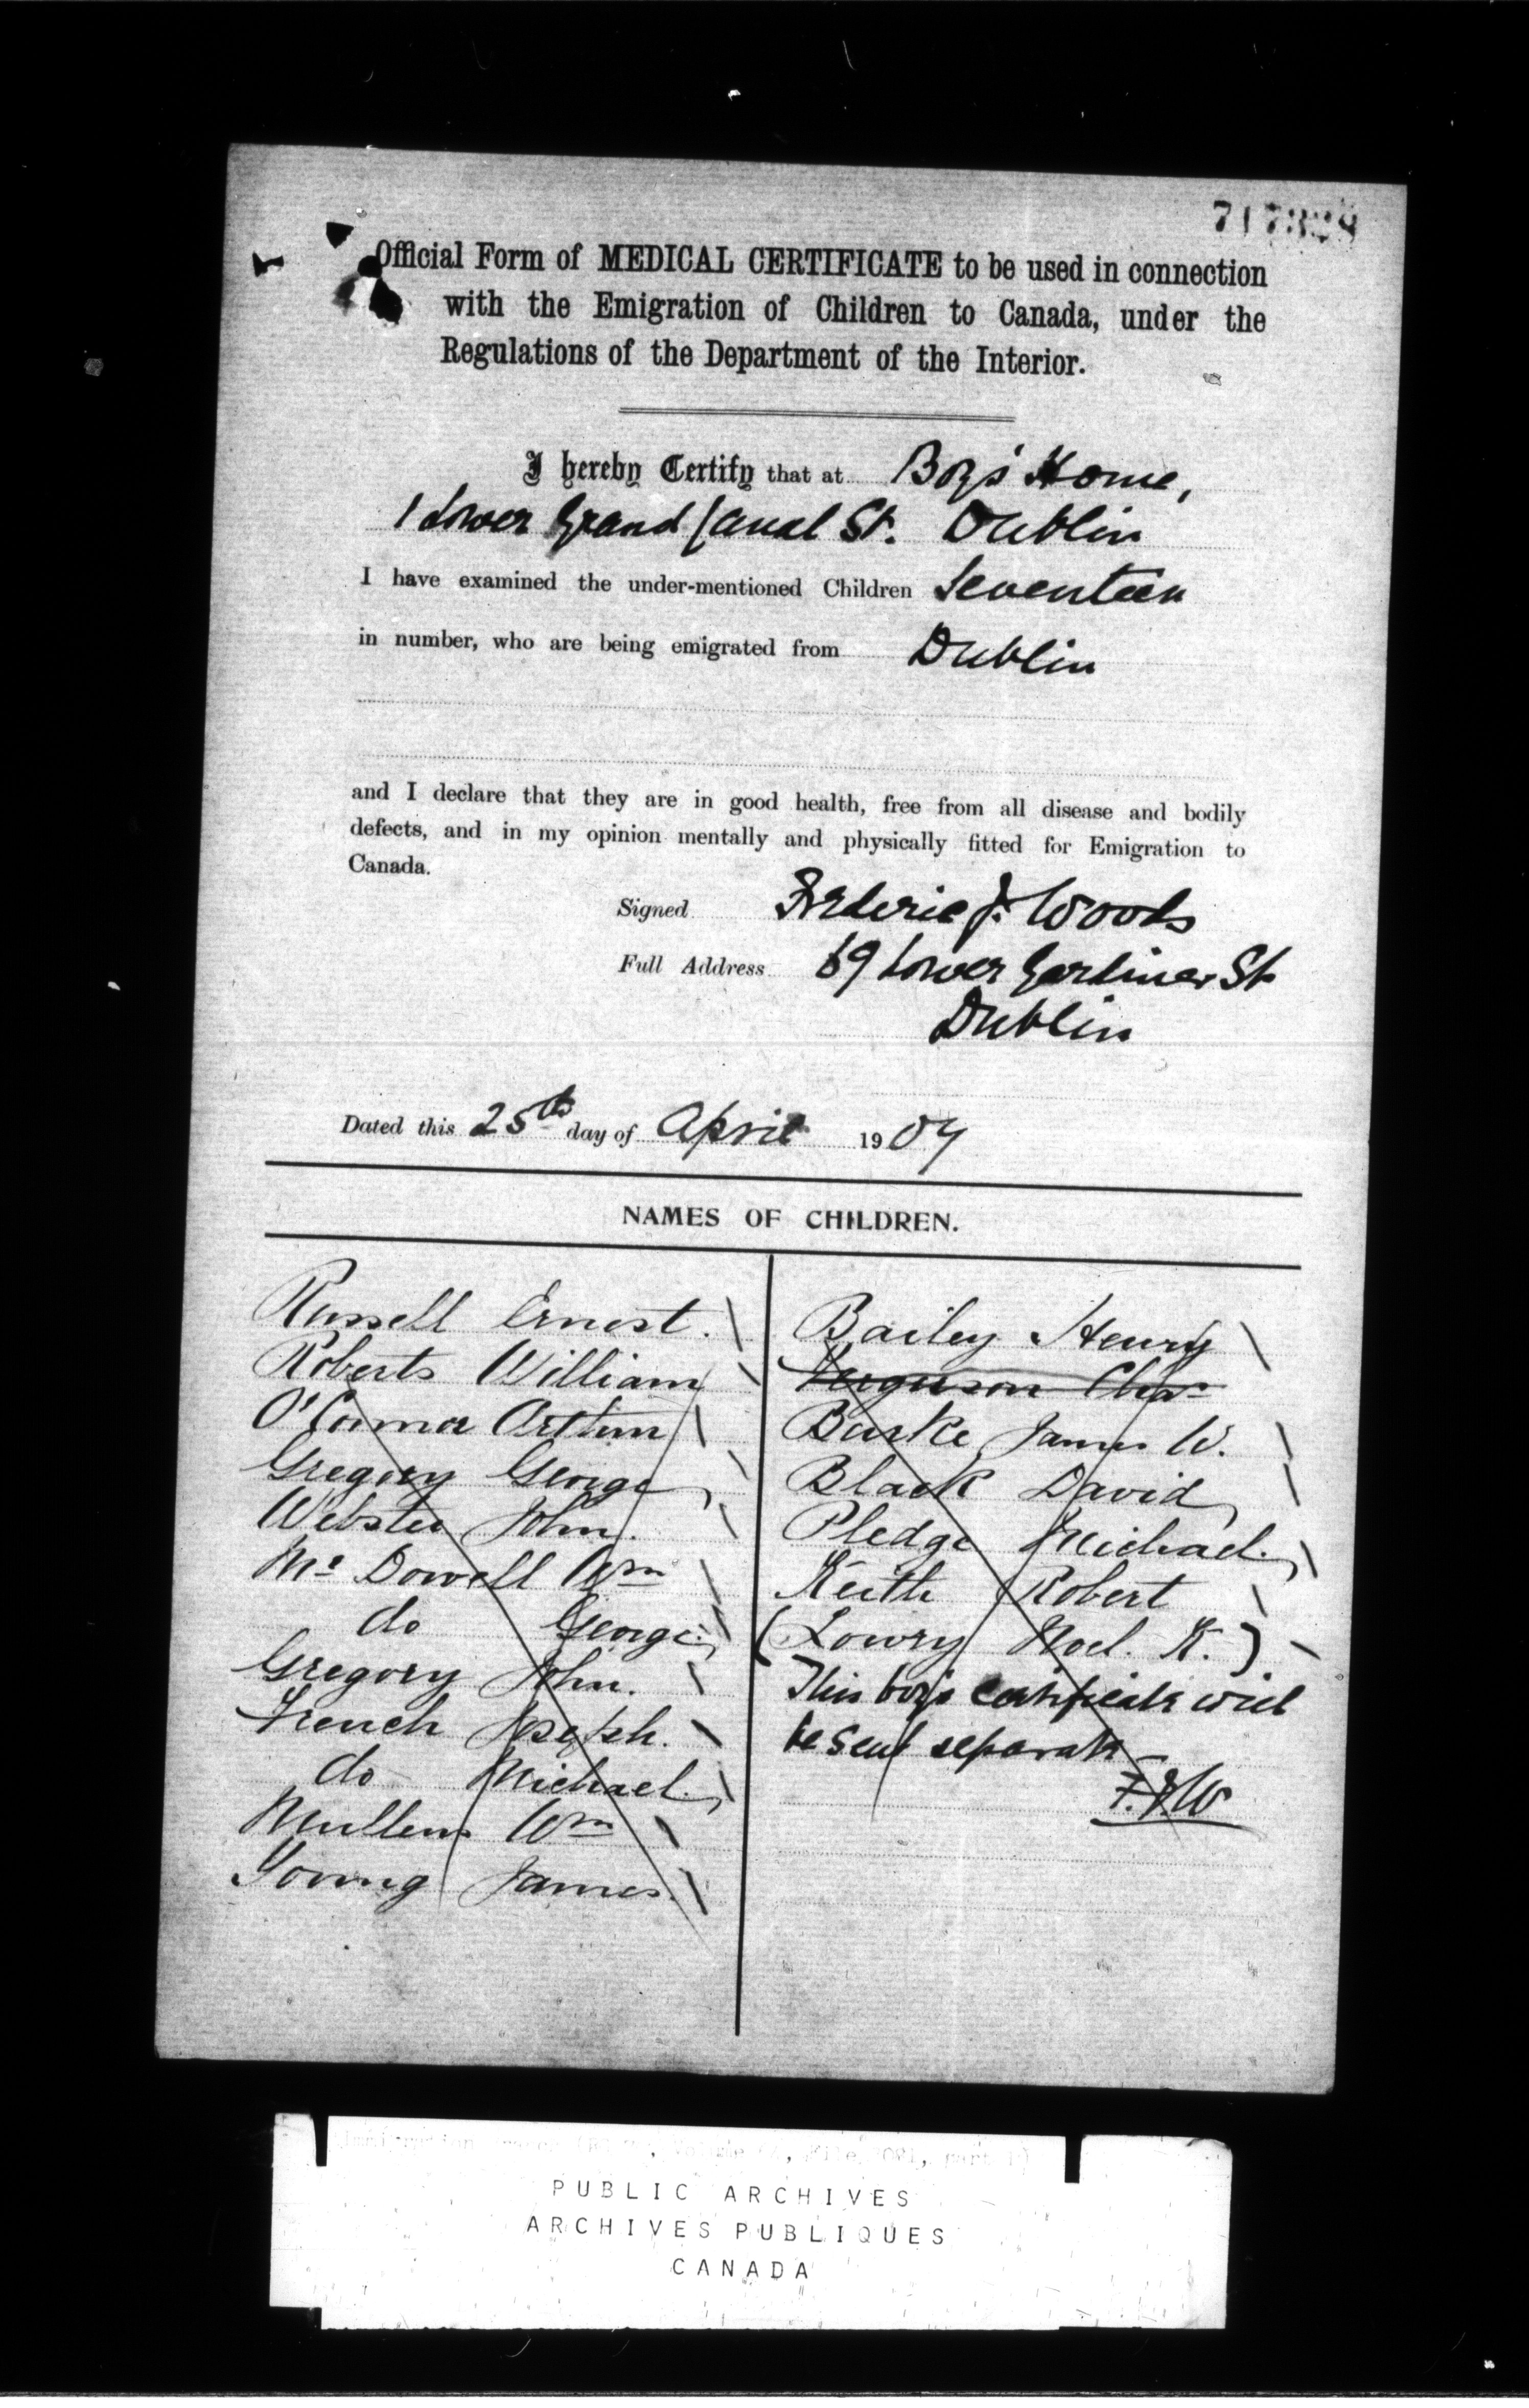 Official Form of MEDICAL CERTIFICATE to be used in connection
with the Emigration of Children to Canada, under the
Regulations of the Department of the Interior.
I hereby Certify that at Boys' Home,
1 Lower Grand Canal St. Dublin
I have examined the under-mentioned Children Seventeen
in number, who are being emigrated from Dublin
and I declare that they are in good health, free from all disease and bodily
defects, and in my opinion mentally and physically fitted for Emigration to
Canada.
Signed Frederic J. Woods
Full Address 69 Lower Gardiner St
Dublin
Dated this 25th day of April 1907
NAMES OF CHILDREN.
Russell Ernest.
Roberts William
O'Connor Arthur
Gregory George
Webster John.
Mc Dowell Wm
do George
Gregory John.
French Joseph.
do Michael.
Mullens Wm
Young James.
Bailey Henry
Ferguson Chas
Burke James W.
Black David
Pledge Michael.
Keith Robert
(Lowry Noel. K.)
This boy's certificate will
be sent separate
F.J.W
PUBLIC ARCHIVES
ARCHIVES PUBLIQUES
CANADA